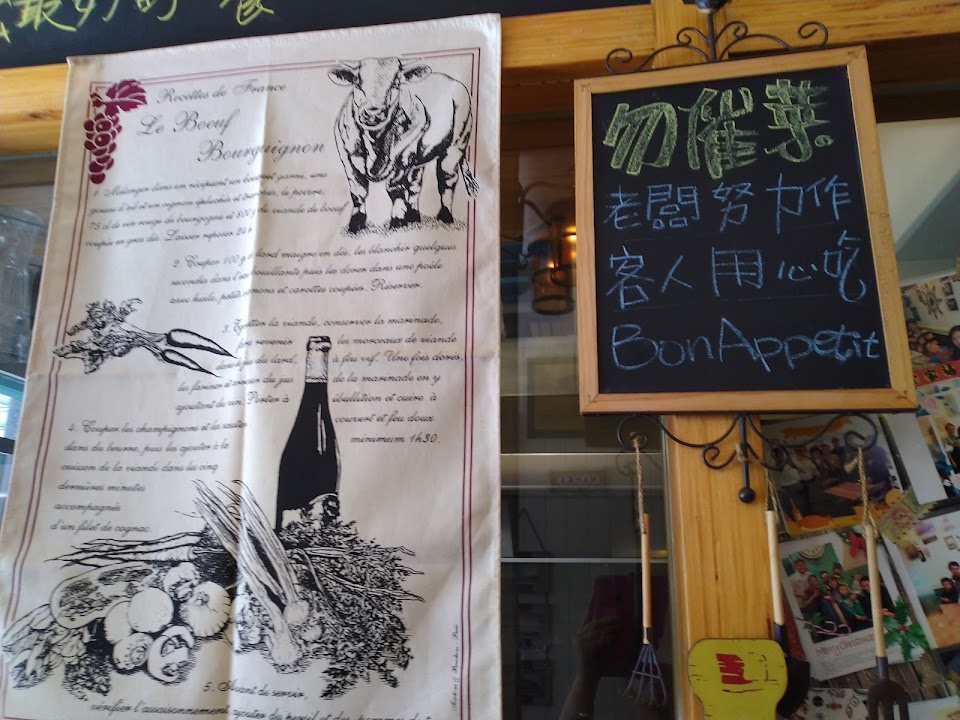 最好的 食
Recettes de France
Le Boeuf
Bourguignon
1. Mélanger dans un récipient un bouquet garni, une
gousse d'ail et un oignon épluchés et émincés, le poivre,
75 cl de vin rouge de bourgogne et 800 g de viande de boeuf
coupée en gros dés. Laisser reposer 24
2. Couper 100 g de lard maigre en dés, les blanchir quelques
secondes dans l'eau bouillante puis les dorer dans une poêle
avec huile, petits oignons et carottes coupées. Réserver.
3. Egoutter la viande, conserver la marinade,
faire revenir les morceaux de viande
du lard, à feu vif. Une fois dorés,
les fariner et arroser du jus de la marinade en y
ajoutant du vin. Porter à ébullition et cuire à
couvert et feu doux
minimum 1h30.
4. Couper les champignons et les sauter
dans du beurre, puis les ajouter à la
cuisson de la viande dans les cinq
dernières minutes
accompagnés
d'un filet de cognac.
5. Avant de servir,
vérifier l'assaisonnement, ajouter du persil et des pommes de t
勿催菜。
老闆努力作
客人用心吃
Bon Appetit
Merry Christmas